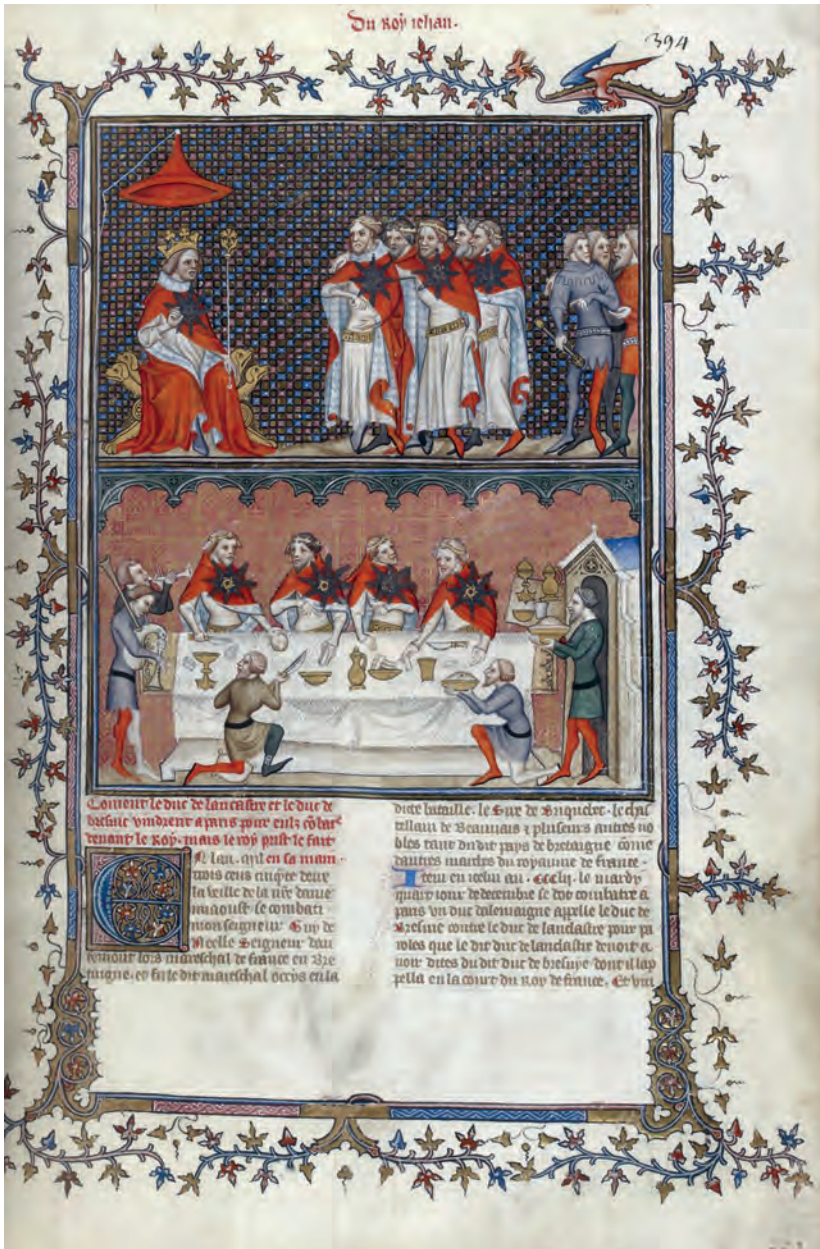 Du Roy iehan.
394
Coment le duc de lancastre et le duc de
bresuic vindrent a paris pour eulz cōbatͤ
deuant le Roy. mais le roy prist le fait
en sa main.
En lan. mil
trois cens cinqͤte deux
la veille de la nrͤe dame
miaoust. se combati
monseigneur Guy de
Neelle Seigneur dou
femont lors mareschal de france en Bre
taigne. et fu le dit mareschal occis en la
dicte bataille. le Sire de Briquebec. le chas
tellain de Beauuais ⁊ pluseurs autres no
bles tant du dit pays de bretaigne come
dautres marches du royaume de france.
Item en icelui an. ccclij. le mardy
quart iour de decembre se dot combatre a
paris vn duc dalemaigne appelle le duc de
Bresuic contre le duc de lancastre pour pa
roles que le dit duc de lancastre deuoit a
uoir dites du dit duc de bresuyc dont il lap
pella en la court du Roy de france. Et vin